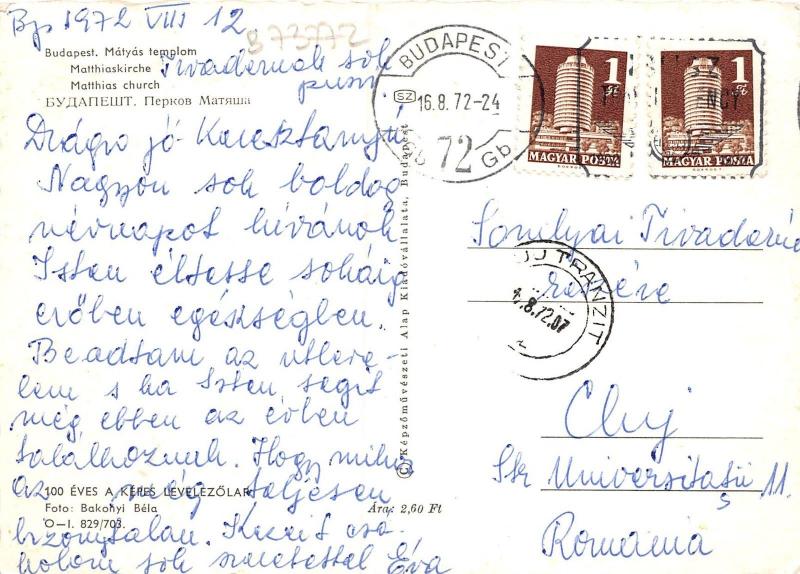 Bp 1972 VIII 12
873772
Budapest. Mátyás templom
Matthiaskirche
Matthias church
БУДАПЕШТ. Перков Матяша
Tivadarnak sok
puszi
Drága jó Keresztanyu
Nagyon sok boldog
névnapot kívánok
Isten éltesse sokáig
erőben egészségben.
Beadtam az utleve-
lem s ha Isten segit
még ebben az évben
találkozunk. Hogy mikor
az még teljesen
bizonytalan. Kezeit cso-
kolom sok szeretettel Éva
100 ÉVES A KÉPES LEVELEZŐLAP
Foto: Bakonyi Béla
O—I. 829/703.
Ára: 2,60 Ft
© Képzőművészeti Alap Kiadóvállalata, Budapest
BUDAPEST
SZ 16.8.72-24
72
Gb
1 Ft
MAGYAR POSTA
1 Ft
MAGYAR POSTA
Somlyai Tivadarné
részére
UJ TRANZIT
.8.72.07
Cluj
Str Universității 11.
Romania